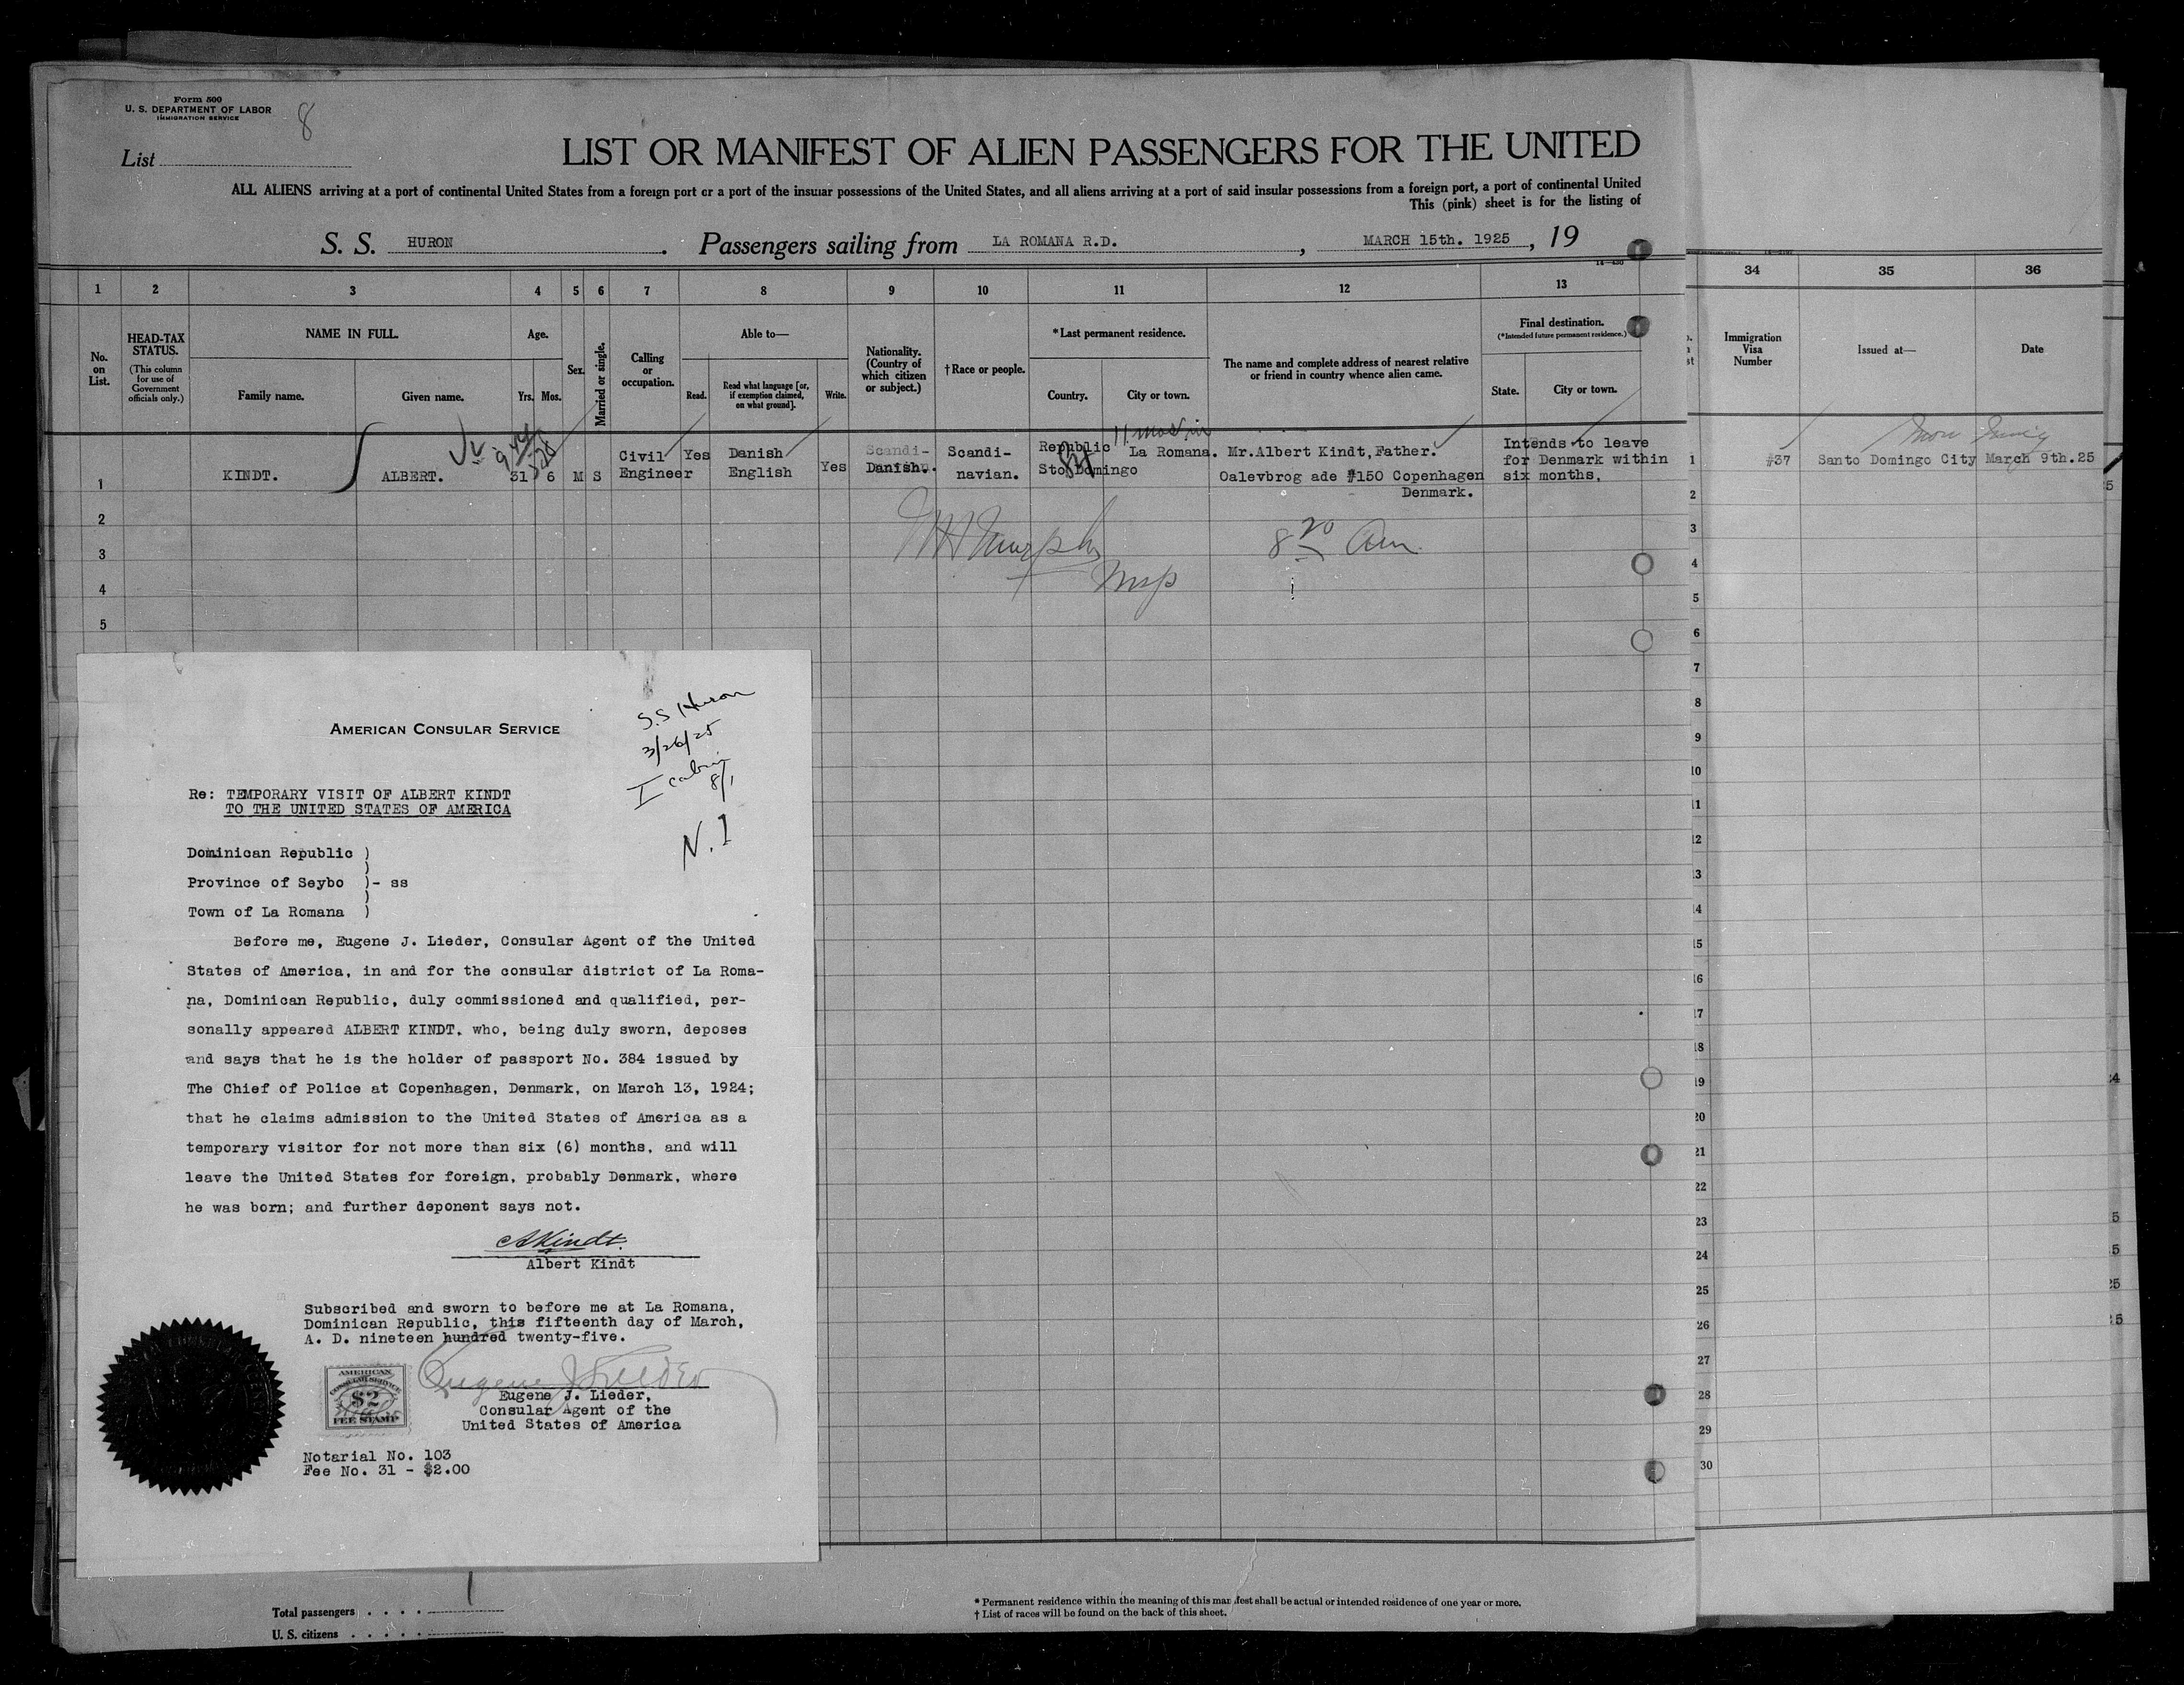 Form 500
U. S. DEPARTMENT OF LABOR
IMMIGRATION SERVICE
8
List
LIST OR MANIFEST OF ALIEN PASSENGERS FOR THE UNITED
ALL ALIENS arriving at a port of continental United States from a foreign port or a port of the insular possessions of the United States, and all aliens arriving at a port of said insular possessions from a foreign port, a port of continental United
This (pink) sheet is for the listing of
S. S. HURON. Passengers sailing from LA ROMANA R.D., MARCH 15th. 1925, 19
1 2 3 4 5 6 7 8 9 10 11 12 13 34 35 36
No. on List.
HEAD-TAX STATUS.
(This column for use of Government officials only.)
NAME IN FULL.
Family name.
Given name.
Age.
Yrs. Mos.
Sex.
Married or single.
Calling or occupation.
Able to—
Read.
Read what language [or, if exemption claimed, on what ground].
Write.
Nationality. (Country of which citizen or subject.)
†Race or people.
*Last permanent residence.
Country.
City or town.
The name and complete address of nearest relative or friend in country whence alien came.
Final destination.
(*Intended future permanent residence.)
State.
City or town.
Immigration Visa Number
Issued at—
Date
11 mos in
1 KINDT. ALBERT. 31 6 M S Civil Engineer Yes Danish English Yes Scandi- Danish. Scandi- navian. Republic Sto Domingo La Romana. Mr.Albert Kindt,Father. Oalevbrog ade #150 Copenhagen Denmark. Intends to leave for Denmark within six months.
1 #37 Santo Domingo City March 9th.25
2
3
4
5
8 20 am
2
3
4
5
6
7
8
9
10
11
12
13
14
15
16
17
18
19
20
21
22
23
24
25
26
27
28
29
30
S.S Huron
3/26/25
I cabin
8/1
N.I
AMERICAN CONSULAR SERVICE
Re: TEMPORARY VISIT OF ALBERT KINDT
TO THE UNITED STATES OF AMERICA
Dominican Republic )
)
Province of Seybo )- ss
)
Town of La Romana )
Before me, Eugene J. Lieder, Consular Agent of the United
States of America, in and for the consular district of La Roma-
na, Dominican Republic, duly commissioned and qualified, per-
sonally appeared ALBERT KINDT. who, being duly sworn, deposes
and says that he is the holder of passport No. 384 issued by
The Chief of Police at Copenhagen, Denmark, on March 13, 1924;
that he claims admission to the United States of America as a
temporary visitor for not more than six (6) months, and will
leave the United States for foreign, probably Denmark, where
he was born; and further deponent says not.
AKindt.
Albert Kindt
Subscribed and sworn to before me at La Romana,
Dominican Republic, this fifteenth day of March,
A. D. nineteen hundred twenty-five.
Eugene J Lieder
AMERICAN
CONSULAR SERVICE
$2
FEE STAMP
Eugene J. Lieder,
Consular Agent of the
United States of America
Notarial No. 103
Fee No. 31 - $2.00
Total passengers . . . . 1
U. S. citizens . . . . .
* Permanent residence within the meaning of this manifest shall be actual or intended residence of one year or more.
† List of races will be found on the back of this sheet.